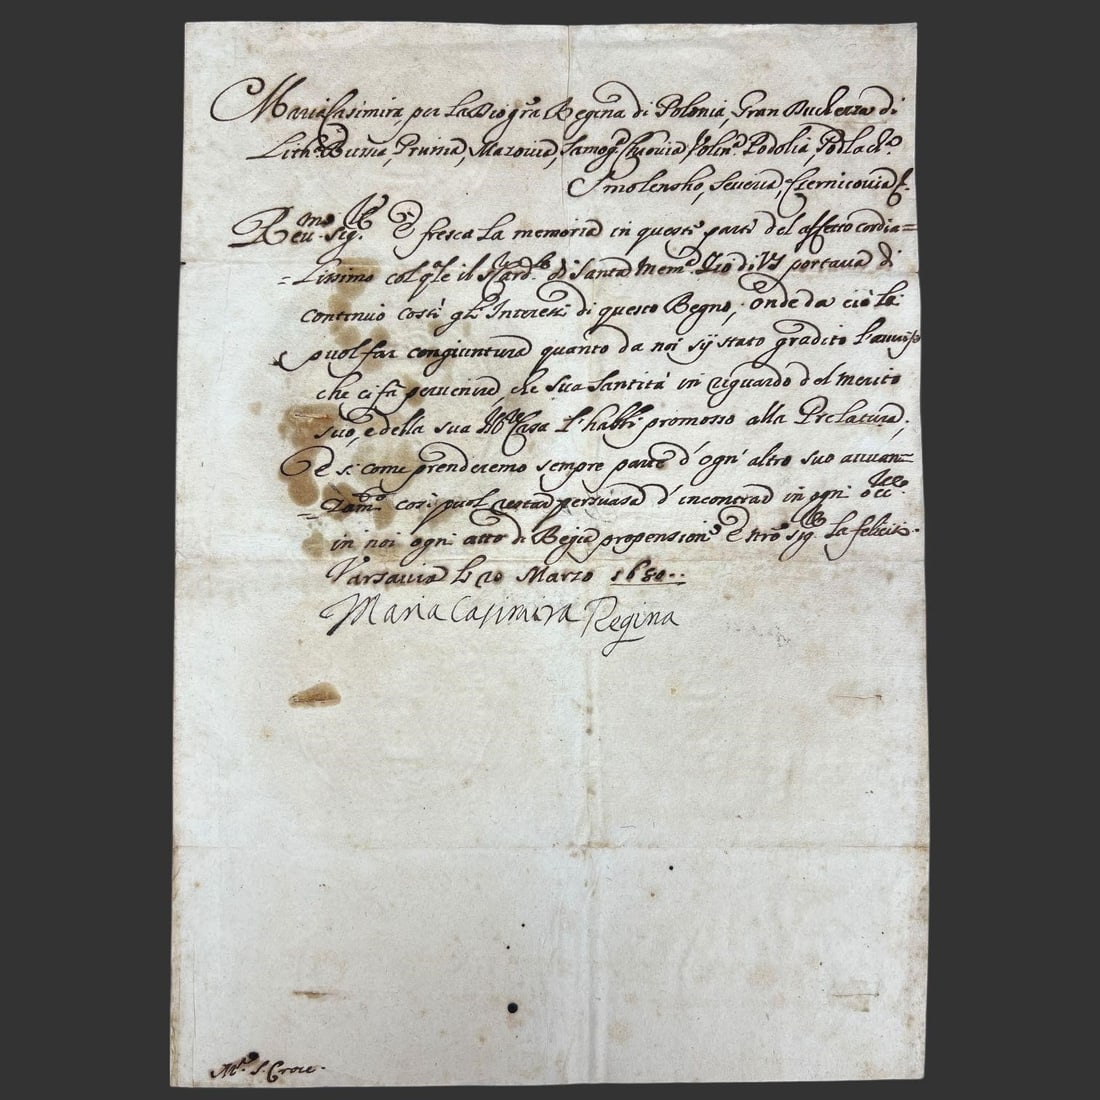 Maria Casimira, per La Dio gra Regina di Polonia, Gran Duchessa di
Lith:a Russia, Prussia, Mazovia, Samog:a Chiovia Volin:a Podolia, Podlach:a
Smolensko, Severia, Czernicovia &.
Reu:mo Sig:re E fresca La memoria in queste parti del affetto cordia=
=lissimo col qle il Card:le di Santa Mem:a Zio di VS portava di
continuo costì gli Interessi di questo Regno; onde da ciò la
puol far congiuntura quanto da noi sij stato gradito l'auuiso
che ci fà pervenire, che sua Santità in riguardo del merito
suo, e della sua Casa l'habbi promosso alla Prelatura;
E si come prenderemo sempre parte d'ogni altro suo auuan=
=zam:to così puol restar persuasa d'incontrar in ogni occ:ne
in noi ogni atto di Regia propensione E Sig:re la feliciti.
Varsavia li 20 Marzo 1680..
Maria Casimira Regina
M:r S. Croce.